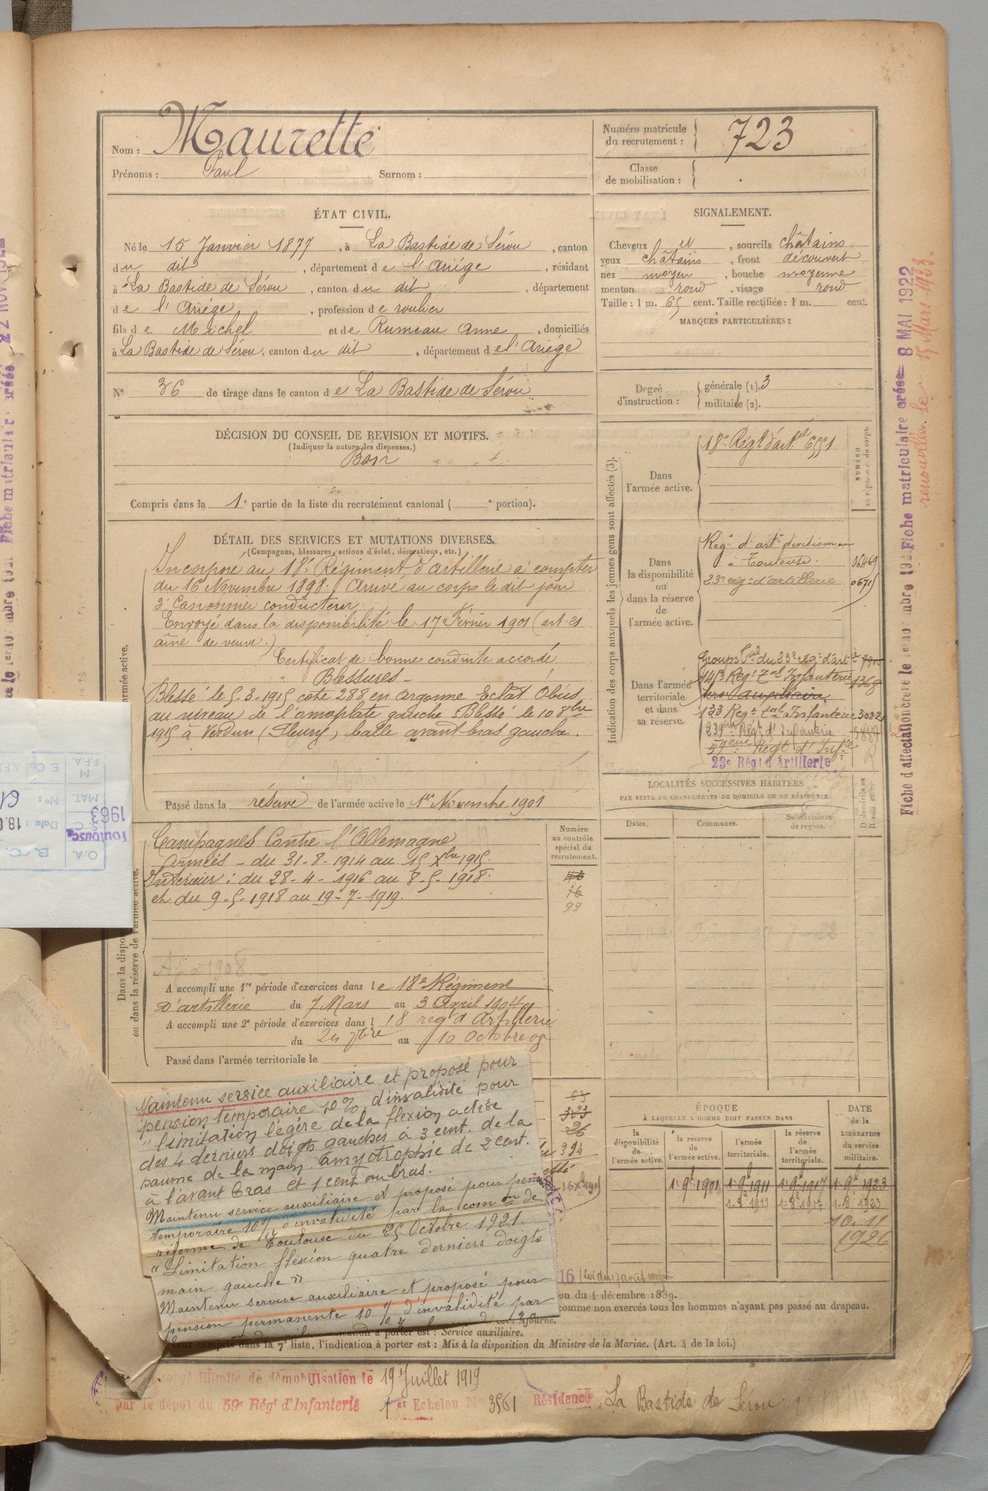 Nom : Maurette
Prénoms : Paul Surnom :
Numéro matricule du recrutement : 723
Classe de mobilisation :
ÉTAT CIVIL.
Né le 15 Janvier 1877, à La Bastide de Sérou, canton
du dit, département de l'Ariège, résidant
à La Bastide de Sérou, canton du dit, département
de l'Ariège, profession de roulier
fils de Michel et de Rumeau Anne, domiciliés
à La Bastide de Sérou, canton du dit, département de l'Ariège
N° 36 de tirage dans le canton de La Bastide de Sérou
SIGNALEMENT.
Cheveux et, sourcils châtains
yeux châtains, front découvert
nez moyen, bouche moyenne
menton rond, visage rond
Taille : 1 m. 65 cent. Taille rectifiée : 1 m. cent.
MARQUES PARTICULIÈRES :
Degré d'instruction : générale (1). 3
militaire (2).
DÉCISION DU CONSEIL DE REVISION ET MOTIFS.
(Indiquer la nature des dispenses.)
Bon
Compris dans la 1e partie de la liste du recrutement cantonal ( e portion).
DÉTAIL DES SERVICES ET MUTATIONS DIVERSES.
(Campagnes, blessures, actions d'éclat, décorations, etc.)
Incorporé au 18e Régiment d'artillerie à compter
du 16 Novembre 1898. Arrivé au corps le dit jour
2e Canonnier conducteur
Envoyé dans la disponibilité le 17 Février 1901 (art 21
aîné de veuve.)
Certificat de bonne conduite accordé
Blessures -
Blessé le 5.3.1915 cote 288 en Argonne Eclat Obus
au niveau de l'omoplate gauche. Blessé le 10 8bre
1915 à Verdun (Fleury) balle avant bras gauche.
Passé dans la réserve de l'armée active le 1er Novembre 1901
Campagnes Contre l'Allemagne
Armées - du 31-8-1914 au 15 Xbre 1915.
Intérieur : du 28-4-1916 au 8-5-1918.
et du 9-5-1918 au 19-7-1919.
A accompli une 1re période d'exercices dans le 18e Régiment
d'artillerie du 7 Mars au 3 Avril 1904
A accompli une 2e période d'exercices dans l 18 reg d'Artillerie
du 24 7bre au 10 Octobre 08
Passé dans l'armée territoriale le
Numéro au contrôle spécial du recrutement.
99
Indication des corps auxquels les jeunes gens sont affectés (3).
Dans l'armée active.
18e Régt d'art
Dans la disponibilité ou dans la réserve de l'armée active.
Regt d'arte divisionn
à Toulouse.
23e rég. d'artillerie
Dans l'armée territoriale et dans sa réserve.
Groupe Tal du 23e rég. d'art
Regt Tal Infanterie
133 Regt Tal Infanterie
Régt d'Infanterie
59eme Régt d'Infie
23e Régt d'Artillerie
LOCALITÉS SUCCESSIVES HABITÉES
PAR SUITE DE CHANGEMENTS DE DOMICILE OU DE RÉSIDENCE.
Dates. Communes. Subdivisions de région.
ÉPOQUE
À LAQUELLE L'HOMME DOIT PASSER DANS
la disponibilité de l'armée active. la réserve de l'armée active. l'armée territoriale. la réserve de l'armée territoriale.
DATE de la LIBÉRATION du service militaire.
1.9e 1901 1.9e 1911 1.9e 1917 1.9e 1923
10.11
1926
Maintenu service auxiliaire et proposé pour
pension temporaire 10 % d'invalidité pour
"limitation légère de la flexion active
des 4 derniers doigts gauches à 3 cent. de la
paume de la main amyotrophie de 2 cent.
à l'avant bras et 1 cent au bras.
Maintenu service auxiliaire et proposé pour pens
temporaire 10 % d'invalidité par la comon de
réforme de Toulouse du 25 Octobre 1921.
"Limitation flexion quatre derniers doigts
main gauche"
Maintenu service auxiliaire et proposé pour
pension permanente 10 % d'invalidité par
on du 4 décembre 1889.
comme non exercés tous les hommes n'ayant pas passé au drapeau.
l'indication à porter est : Service auxiliaire.
dans la 7e liste, l'indication à porter est : Mis à la disposition du Ministre de la Marine. (Art. 4 de la loi.)
congé illimité de démobilisation le 19 Juillet 1919
par le dépôt du 59e Régt d'Infanterie 1er Echelon N° 3861 Résidence La Bastide de Sérou
Fiche matriculaire créée 8 MAI 1922
renouvelée le 15 Mars 1923.
Toulouse
1963